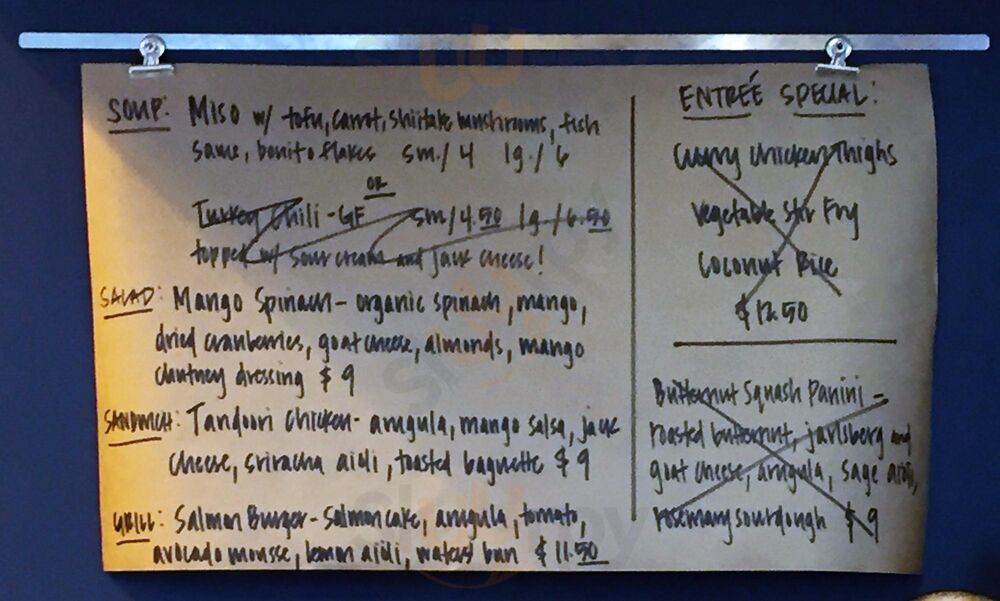 SOUP: MISO w/ tofu, carrot, shiitake mushrooms, fish
same, bonito flakes sm./4 lg./6
OR
Turkey Chili - GF sm/4.50 lg/6.50
topped w/ sour cream and jack cheese!
SALAD: Mango Spinach - organic spinach, mango,
dried cranberries, goat cheese, almonds, mango
chutney dressing $9
SANDWICH: Tandoori Chicken - arugula, mango salsa, jack
cheese, sriracha aioli, toasted baguette $9
GRILL: Salmon Burger - Salmon cake, arugula, tomato,
avocado mousse, lemon aioli, waterst bun $11.50
ENTRÉE SPECIAL:
Curry Chicken Thighs
Vegetable Stir Fry
Coconut Rice
$12.50
Butternut Squash Panini -
roasted butternut, jarlsberg and
goat cheese, arugula, sage aioli,
rosemary sourdough $9